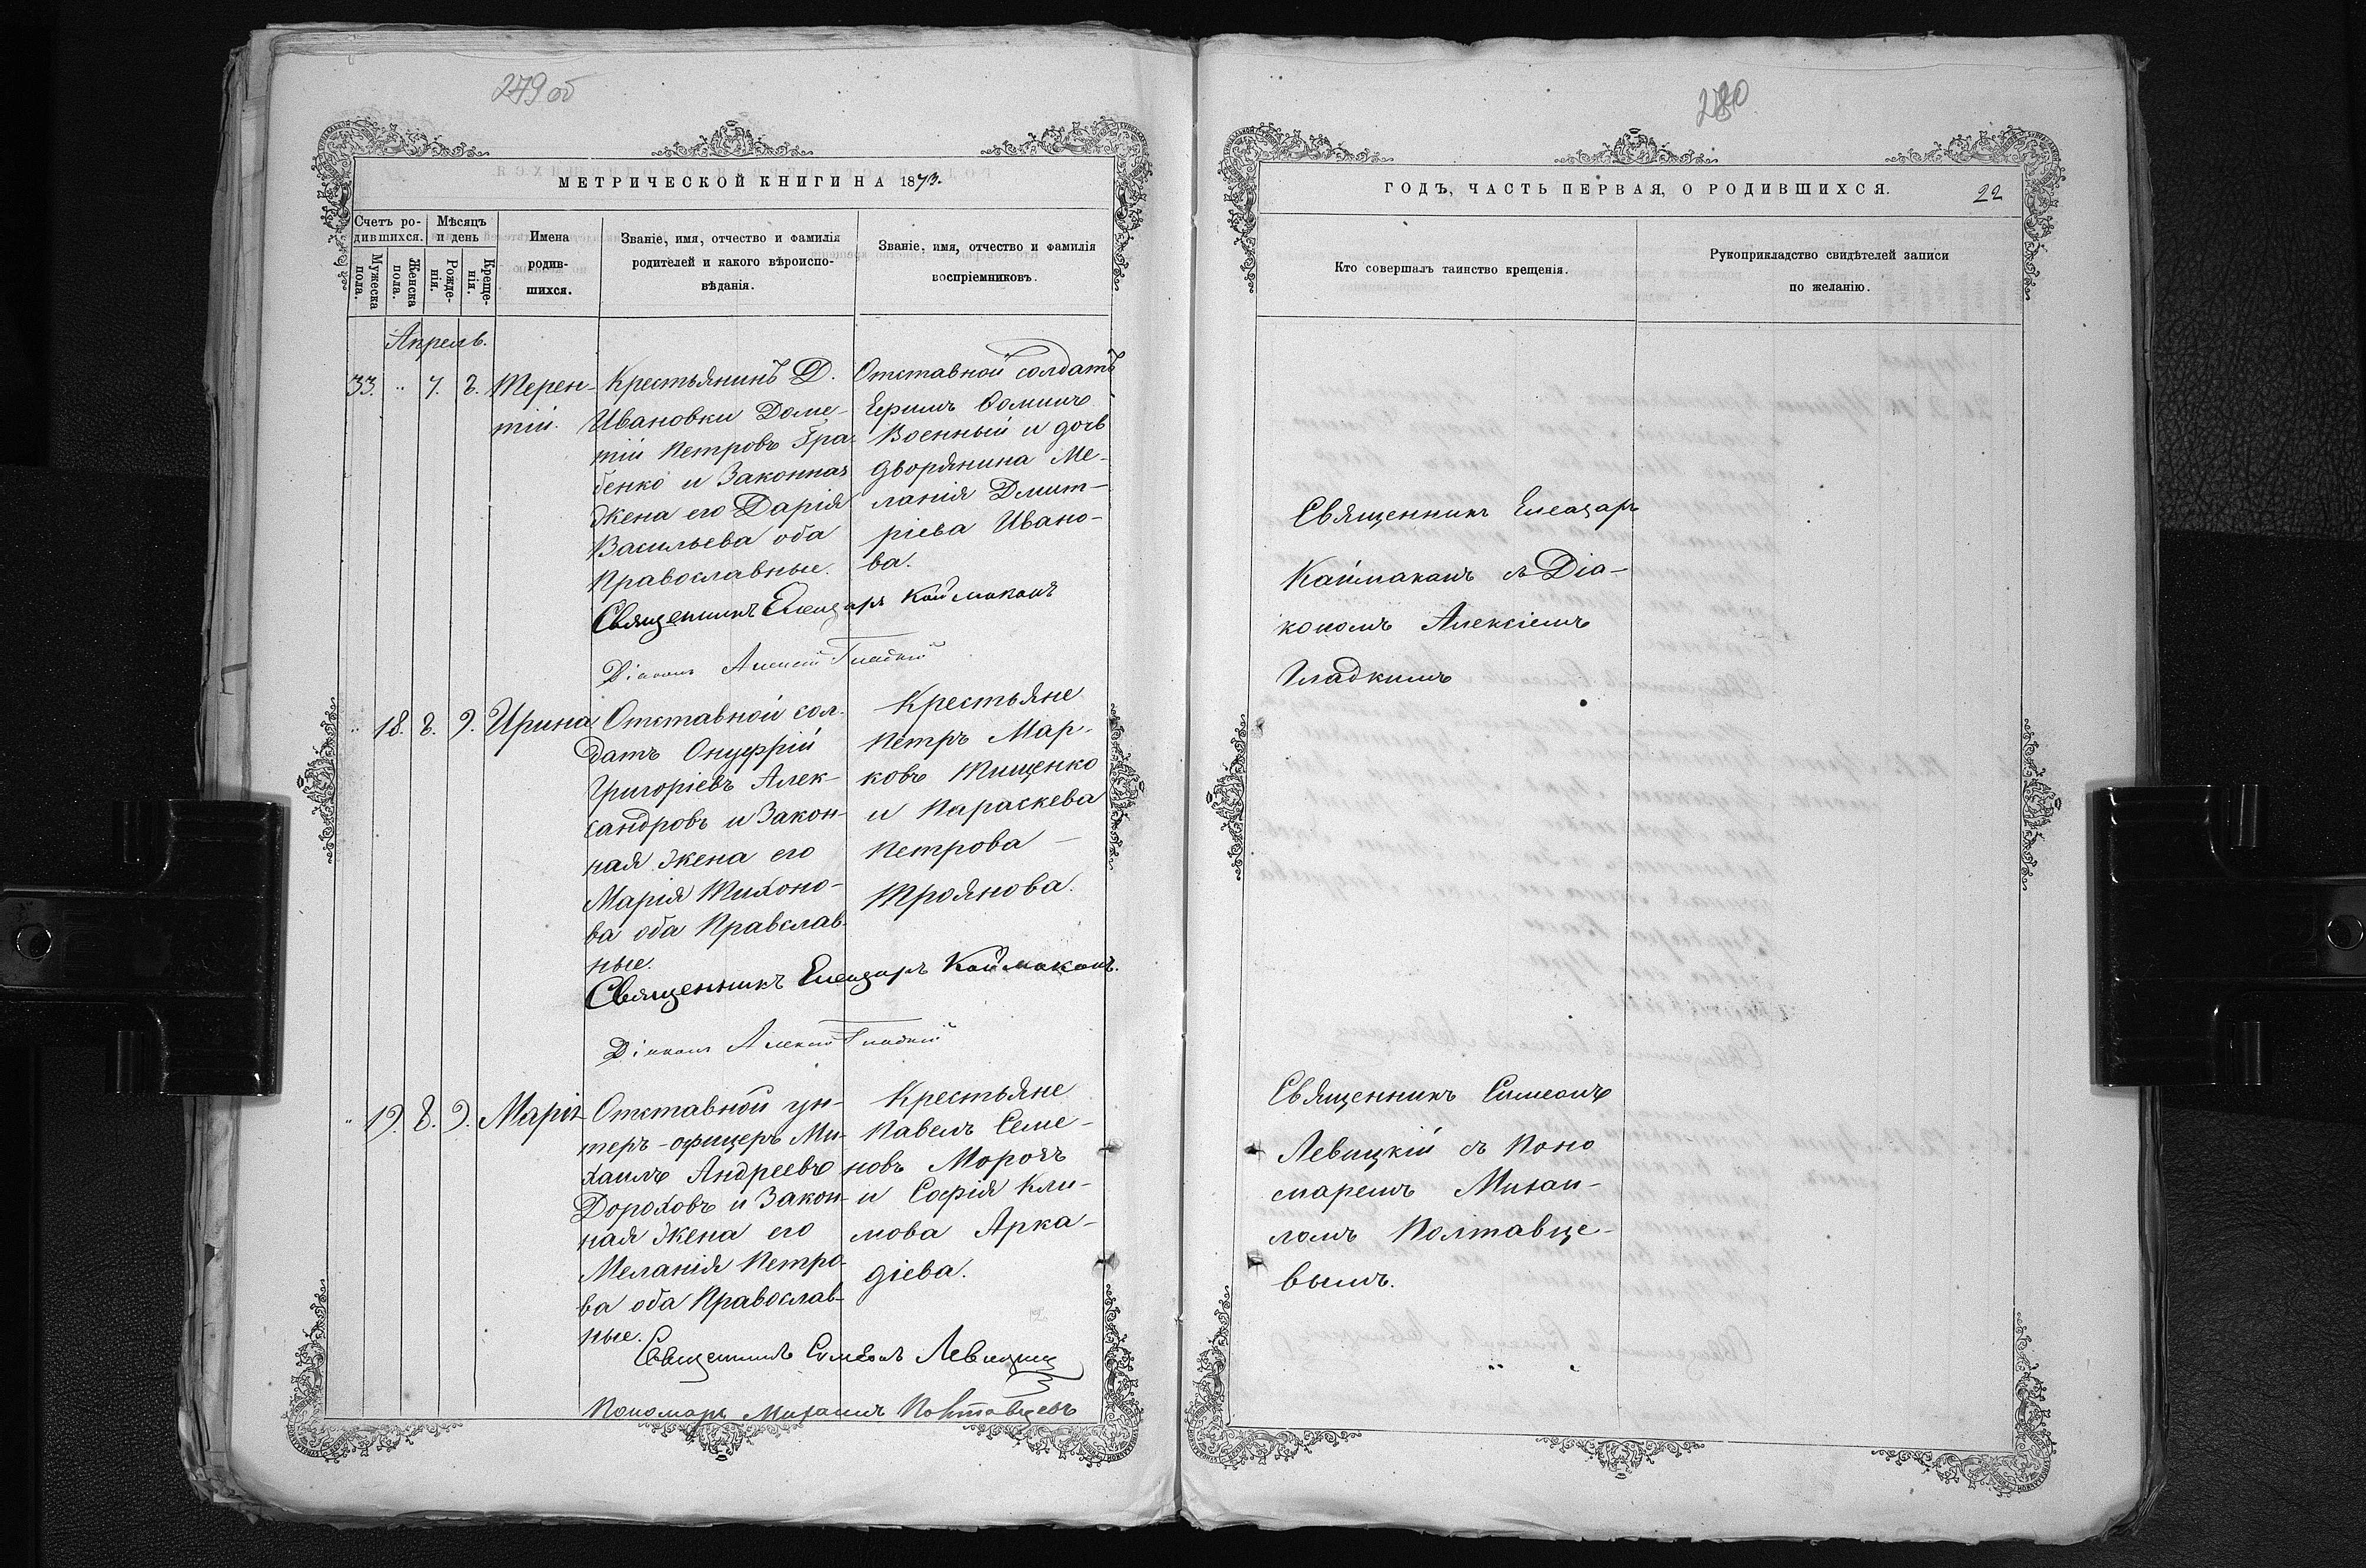 279 об
МЕТРИЧЕСКОЙ КНИГИ НА 1873.
Счетъ ро-
дившихся.
Мужеска
пола.
Женска
пола.
Мѣсяцъ
и день
Рожде-
нія.
Креще-
нія.
Имена
родив-
шихся.
Званіе, имя, отчество и фамилія
родителей и какого вѣроиспо-
вѣданія.
Званіе, имя, отчество и фамилія
воспріемниковъ.
Апрель.
33. " 7. 8. Терен-
тій.
Крестьянинъ Д.
Ивановки Доме-
тій Петровъ Гра-
бенко и Законная
жена его Дарія
Васильева оба
Православные.
Отставной солдатъ
Ефимъ Фоминъ
Военный и дочь
дворянина Ме-
ланія Дмит-
ріева Ивано-
ва.
Священникъ Елеазаръ Каймаканъ
Діаконъ Алексій Гладкій
" 18. 8. 9. Ирина
Отставной сол-
датъ Онуфрій
Григоріевъ Алек-
сандровъ и Закон-
ная жена его
Марія Тихоно-
ва оба Правслав-
ные.
Крестьяне
Петръ Мар-
ковъ Тищенко
и Параскева
Петрова
Троянова.
Священникъ Елеазаръ Каймаканъ.
Діаконъ Алексій Гладкій
" 19. 8. 9. Марія
Отставной ун-
теръ-офицеръ Ми-
хаилъ Андреевъ
Дороховъ и Закон-
ная жена его
Меланія Петро-
ва оба Православ-
ные.
Крестьяне
Павелъ Семе-
новъ Морозъ
и Софія Кли-
мова Арка-
діева.
Священникъ Симеонъ Левицкій
Пономарь Михаилъ Полтавцевъ
280
ГОДЪ, ЧАСТЬ ПЕРВАЯ, О РОДИВШИХСЯ.
22
Кто совершалъ таинство крещенія.
Рукоприкладство свидѣтелей записи
по желанію.
Священникъ Елеазаръ
Каймаканъ съ Діа-
кономъ Алексіемъ
Гладкимъ
Священникъ Симеонъ
Левицкій съ Поно
маремъ Михаи-
ломъ Полтавце-
вымъ.